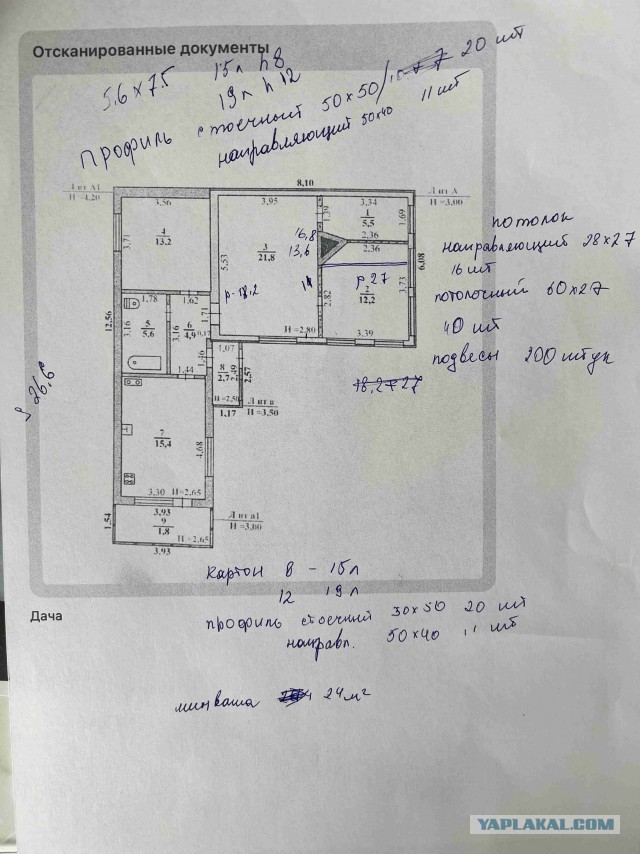 Отсканированные документы
5,6 х 7.5 15л h 8
19л h 12
профиль стоечный 50х50 20 шт
направляющий 50х40 11 шт
Лит А1
Н=4,20
8,10
Лит А
Н=3,00
3,56
3,95
3,34
1,39
1
5,5
1,69
3,71
4
13,2
2,36
2,36
16,8
13,6
3
21,8
5,53
6,08
потолок
направляющий 28х27
16 шт
потолочный 60х27
40 шт
подвесы 200 штук
р-18,2
р 27
2
12,2
3,73
2,82
1,78
1,62
1,71
12,56
3,16
5
5,6
3,16
6
4,9
0,17
Н=2,80
3,39
1,46
1,07
1,44
8
2,7
2,49
2,57
Н=2,50
18,2 27
Лит а
Н=3,50
1,17
26,6
7
15,4
4,68
3,30
Н=2,65
1,54
3,93
9
1,8
Н=2,65
3,93
Лит а1
Н=3,00
картон 8 - 15л
12 19л
Дача
профиль стоечный 30х50 20 шт
направл. 50х40 11 шт
минваша 24м²
YAPLAKAL.COM